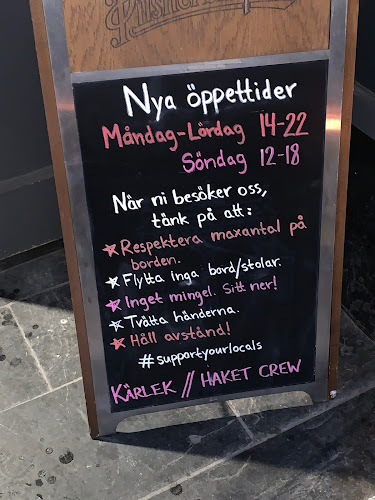 Pilsner
Nya öppettider
Måndag-Lördag 14-22
Söndag 12-18
När ni besöker oss,
tänk på att:
Respektera maxantal på
borden.
Flytta inga bord/stolar.
Inget mingel. Sitt ner!
Tvätta händerna.
Håll avstånd!
#supportyourlocals
KÄRLEK // HAKET CREW